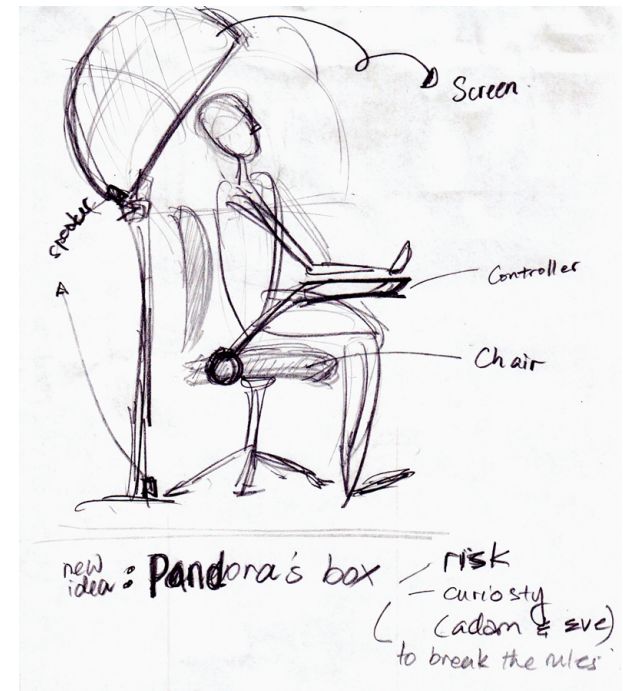 Screen
speaker
Controller
Chair
new idea: Pandora's box
risk
curiosty
(adam & eve)
to break the rules